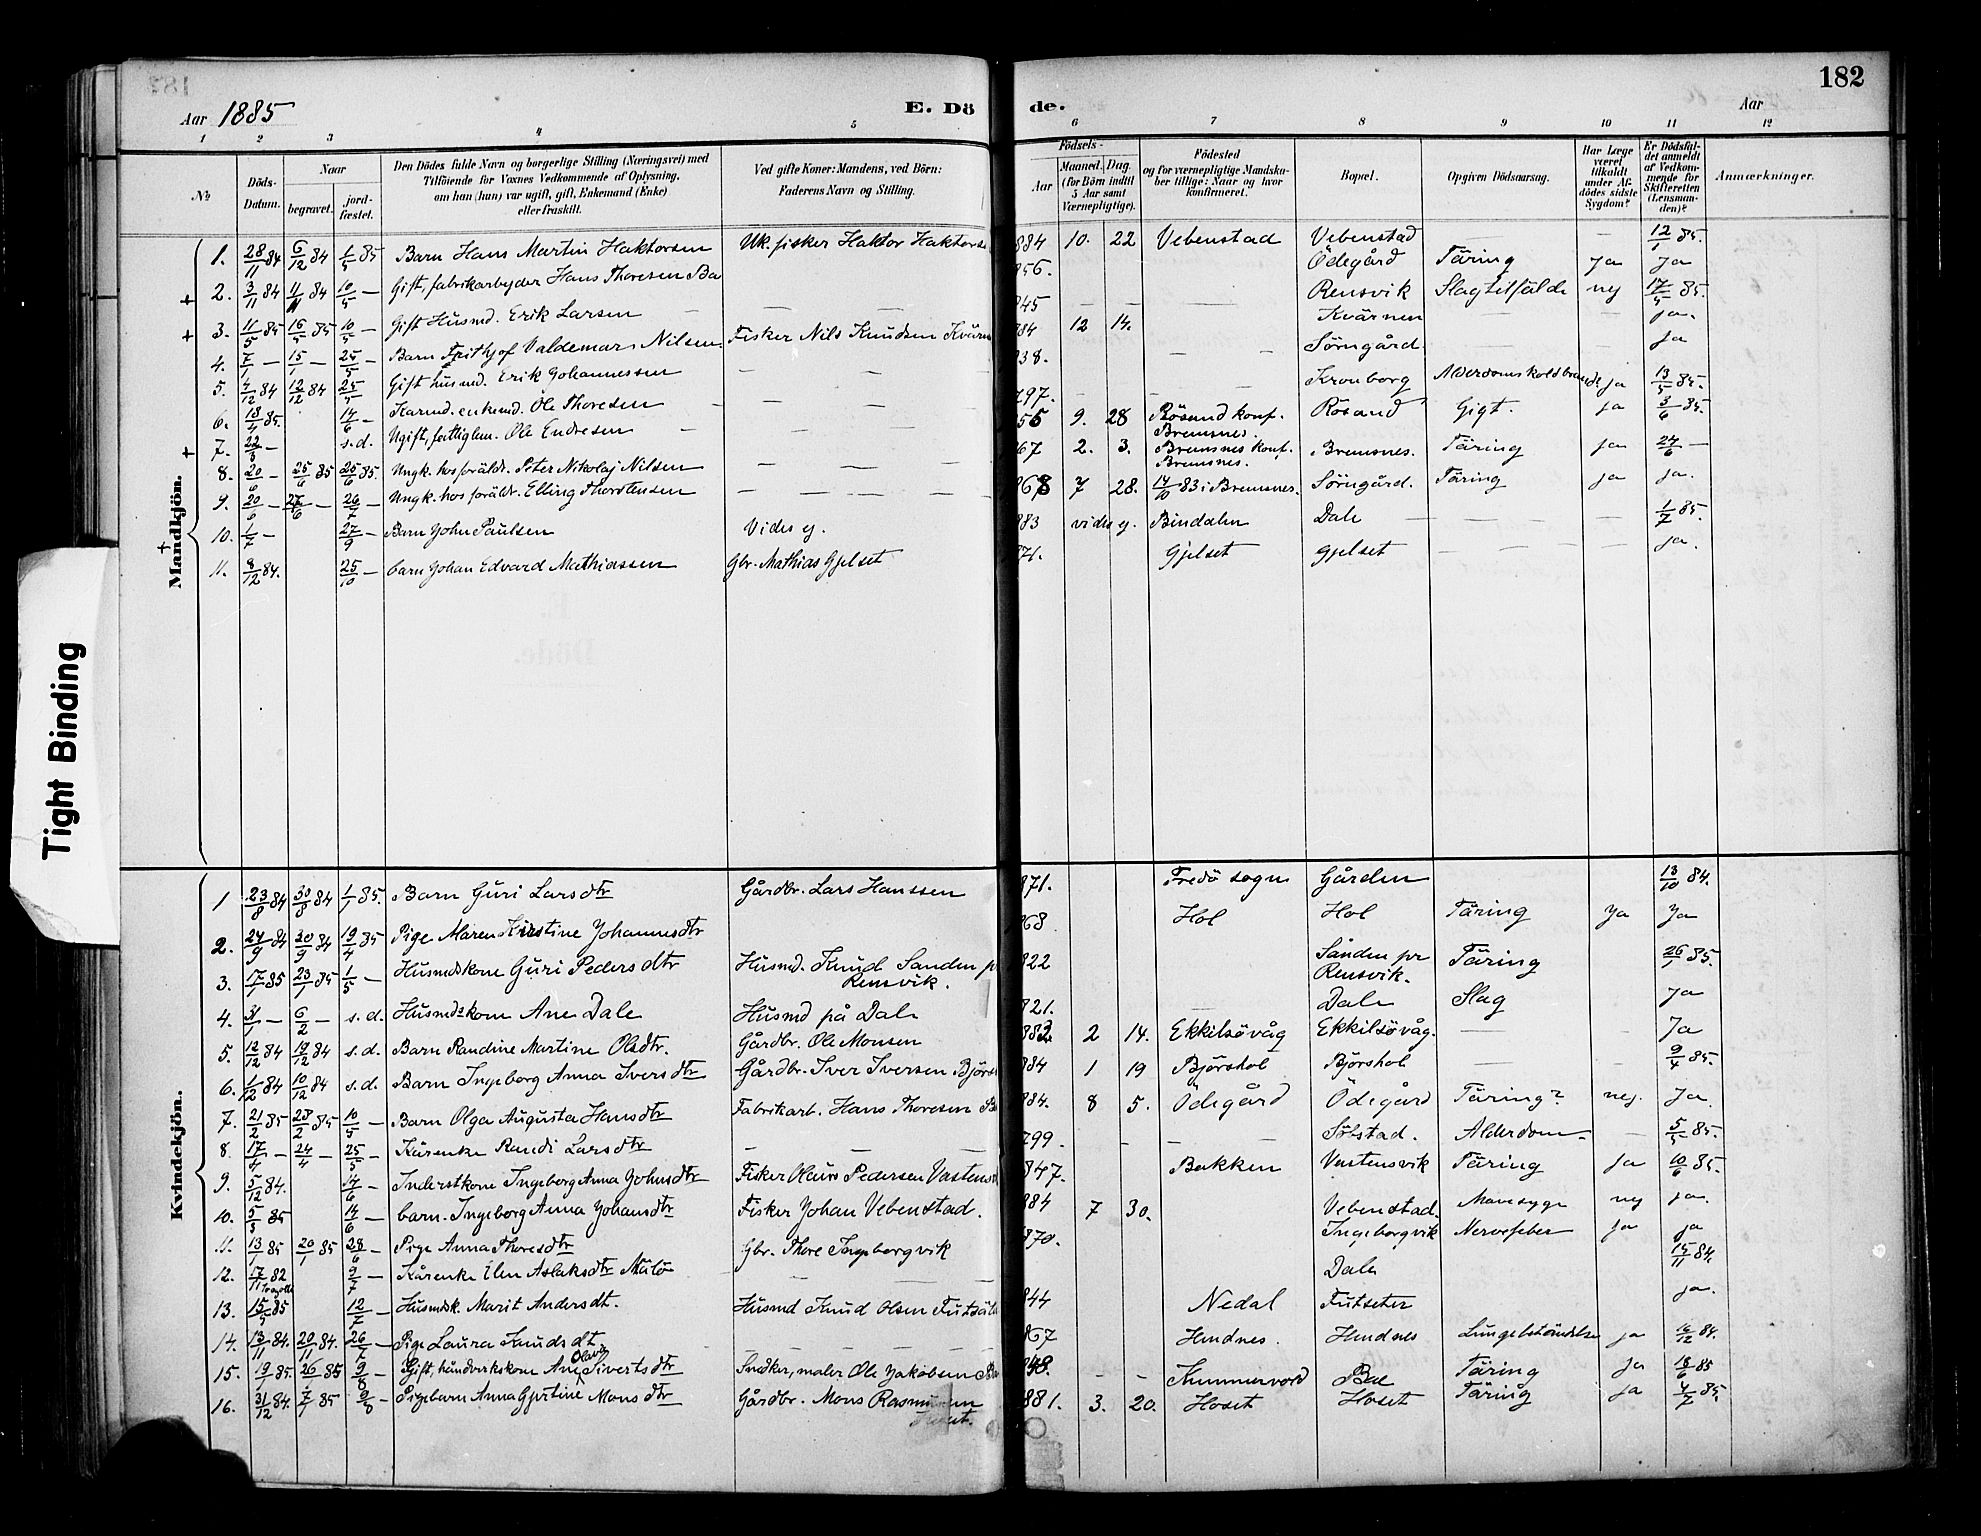 182
Aar 1885 E. Dö de. Aar
1 2 3 4 5 6 7 8 9 10 11 12
№
Döds-Datum.
Naar
begravet.
jord-fæstet.
Den Dödes fulde Navn og borgerlige Stilling (Næringsvei) med
Tilföiende for Voxnes Vedkommende af Oplysning,
om han (hun) var ugift, gift, Enkemand (Enke)
eller fraskilt.
Ved gifte Koner: Mandens, ved Börn:
Faderens Navn og Stilling.
Födsels-
Aar
Maaned. Dag.
(for Börn indtil
5 Aar samt
Værnepligtige).
Födested
og for værnepligtige Mandska-
ber tillige: Naar og hvor
konfirmeret.
Bopæl.
Opgiven Dödsaarsag.
Har Læge
været
tilkaldt
under Af-
dödes sidste
Sygdom?
Er Dödsfal-
det anmeldt
af Vedkom-
mende for
Skifteretten
(Lensman-
den)?
Anmærkninger.
Mandkjön.
1. 28/11 84 6/12 84 1/5 85 Barn Hans Martin Haktorsen Uk. fisker Haktor Haktors 884 10. 22 Vebenstad Vebenstad — 12/1 85.
2. 3/11 84 11/11 84 10/5 — Gift, fabrikarbeyder Hans Thoresen Ba 856. Ödegård Täring ja ja
3. 11/5 85 16/5 85 10/5 — Gift Husmd. Erik Larsen — 845 — — — Rensvik Slagtilfälde nej 17/5 85.
4. 7/1 — 15/1 — 25/5 — Barn Frithjof Valdemar Nilsen Fisker Nils Knudsen Kvärn 884 12 14. Kvärnen — — ja.
5. 4/12 84 12/12 84 25/5 Gift husmd. Erik Johannessen — 838. — Sörngård. ja
6. 18/4 85. 14/6 — Karmd. enkemd. Ole Thoresen — 797. — Kronborg Alderdoms koldbrand ja 13/5 85.
7. 22/5 — s.d. Ugift, fattiglem. Ole Endresen — 9. 28 Rösand konf. Bremsnes. Rösand Gigt. ja 3/6 85.
8. 20/6 — 25/6 85 25/6 85. Ungk. hos foräldr. Peter Nikolaj Nilsen — 867 2. 3. Bremsnes konf. Bremsnes. Bremsnes. Täring ja 24/6 —
9. 20/6 — 27/6 — 26/7 — Ungk. hos foräldr. Elling Thorstensen — 868 7 28. 14/10 83 i Bremsnes. Sörngård. Täring ja ja.
10. 1/7 — 27/9 — Barn John Paulsen Vides ej. 883 vides ej. Bindalen Dale — — 1/7 85.
11. 8/12 84. 25/10 — barn Johan Edvard Mathiassen Gbr. Mathias Gjelset 871. Gjelset Gjelset — — ja.
Kvindekjön.
1 23/8 84 30/8 84 1/1 85. Barn Guri Larsdtr Gårdbr. Lars Hanssen 871. Fredö sogn Gården 13/10 84.
2. 24/9 84 30/9 84 19/4 85 Pige Maren Kirstine Johannesdtr 868 Hol Hol Täring ja ja
3. 17/1 85 23/1 85 1/5 — Husmdskone Guri Pedersdtr Husmd. Knud Sanden pr Rensvik. 822 Sånden pr Rensvik. Täring 26/1 85.
4. 31/1 — 6/2 — s.d. Husmdskone Ane Dale Husmd på Dale 821. — Dale Slag ja
5. 12/12 84 19/12 84 s.d. Barn Randine Martine Olsdtr. Gårdbr. Ole Monsen 882 2 14. Ekkilsövåg Ekkilsövåg. — — Ja
6. 1/12 84 10/12 84 s.d. Barn Ingeborg Anna Iversdtr Gårdbr. Iver Iversen Björs 884 1 19 Björshol Björshol — — 9/4 85.
7. 21/2 85 28/2 85 10/5 — Barn Olga Augusta Hansdtr Fabrikarb. Hans Thoresen Ba 884. 8 5. Ödegård Ödegård Täring? nej. Ja.
8. 17/4 — 24/4 — 25/5 — Kårenke Randi Larsdtr — 799 — — — Sölstad. Alderdom — 5/5 85.
9. 5/12 84. 14/6 — Inderstkone Ingeborg Anna Johnsdtr Fisker Olaus Pedersen Vastens 847. Bakken Vastensvik Täring ja 10/6 85.
10. 5/5 85 14/6 — barn. Ingeborg Anna Johansdtr Fisker Johan Vebenstad. 884 7 30. Vebenstad. Mavesyge nej ja.
11. 13/1 85 20/1 85 28/6 — Pige Anna Thoresdtr Gbr. Thore Ingeborgvik 870. Ingeborgvik Nervefeber ja ja
12. 17/11 82 9/7 — Kårenke Elen Aslaksdtr — Dale 15/11 84.
13. 15/5 85 12/7 — Husmdsk. Marit Andersdt. Husmd Knud Olsen 844 Nedal Futseter ja.
14. 13/11 84. 20/11 84. 26/7 — Pige Laura Knudsdt. — 867 Hendnes. Hendnes Lungebetändelse ja 16/12 84.
15. 19/1 85. 26/1 85 9/8 — Gift, håndverkskone Ane Olava Sivertsdtr Snedker, maler Ole Jakobsen 848. — — Kummervold Bae Täring ja 18/6 85
16. 31/12 84. 7/1 85 9/8 — Pigebarn Anna Gjertine Monsdtr Gårdbr. Mons Rasmussen 881. 3. 20. Hoset Hoset Täring ja 4/7 85.
Tight Binding